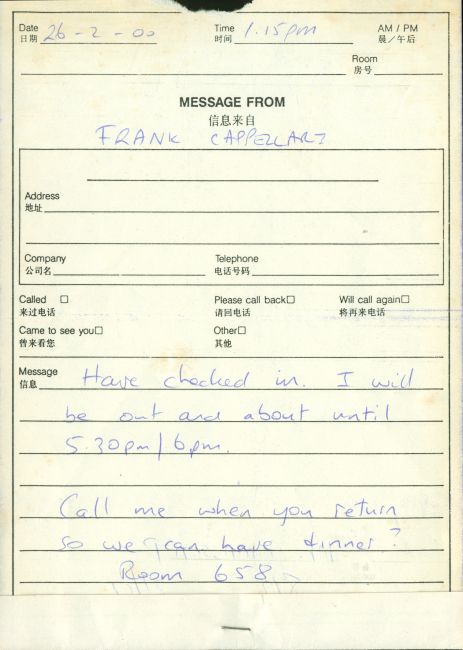 Date 26-2-00 Time 1.15pm AM / PM
日期 时间 晨／午后
Room
房号
MESSAGE FROM
信息来自
FRANK CAPPELLARI
Address
地址
Company Telephone
公司名 电话号码
Called □ Please call back□ Will call again□
来过电话 请回电话 将再来电话
Came to see you□ Other□
曾来看您 其他
Message Have checked in. I will
信息
be out and about until
5.30pm/6pm.
Call me when you return
so we can have dinner?
Room 658